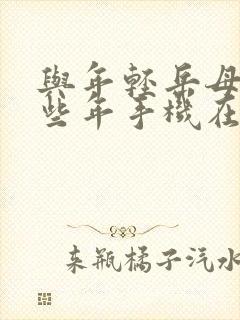 與年輕岳母
些年手機在
来瓶橘子汽水